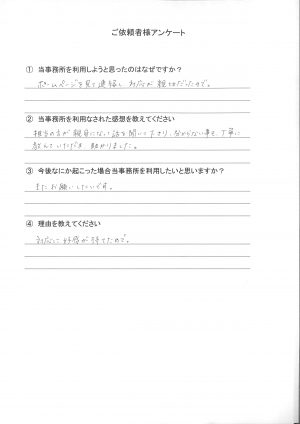 ご依頼者様アンケート
① 当事務所を利用しようと思ったのはなぜですか？
ホームページを見て連絡し、対応が親切だったので。
② 当事務所を利用なされた感想を教えてください
担当の方が親身になって話を聞いて下さり、分からない事も丁寧に
教えていただき助かりました。
③ 今後なにか起こった場合当事務所を利用したいと思いますか？
またお願いしたいです。
④ 理由を教えてください
対応に好感が持てたので。